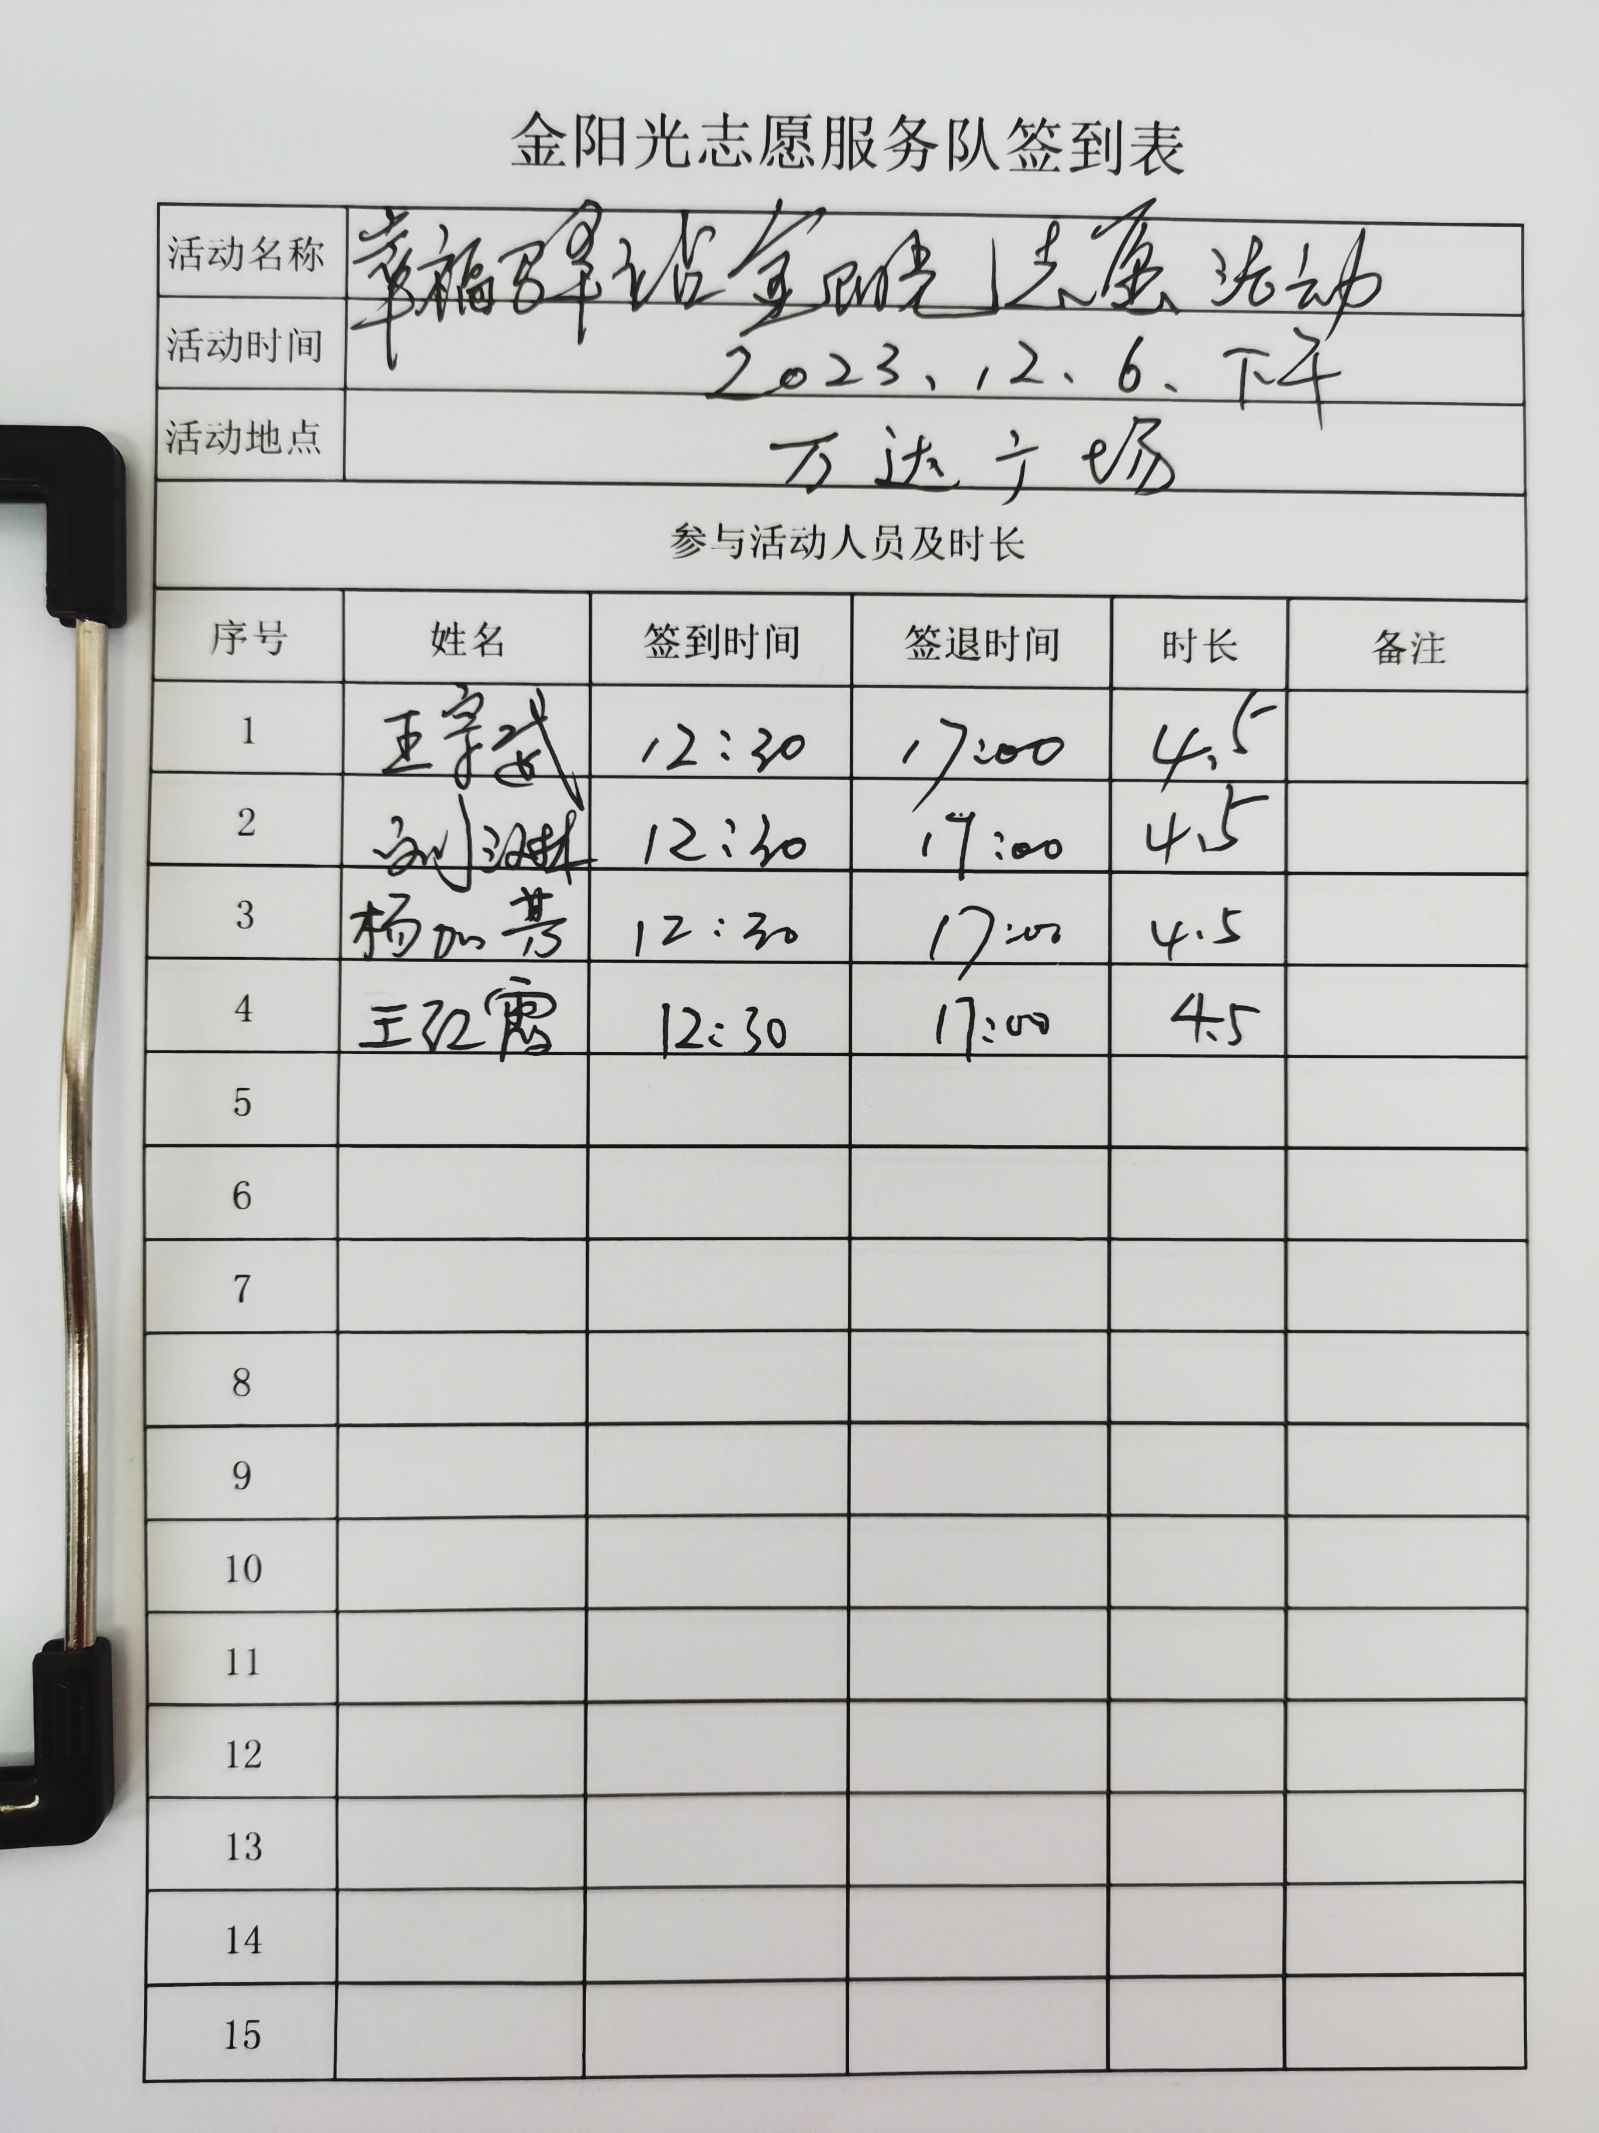 金阳光志愿服务队签到表
活动名称 幸福驿站金阳光志愿活动
活动时间 2023、12、6、下午
活动地点 万达广场
参与活动人员及时长
序号 姓名 签到时间 签退时间 时长 备注
1 王 12:30 17:00 4.5
2 刘汉林 12:30 17:00 4.5
3 杨加芳 12:30 17:00 4.5
4 王红霞 12:30 17:00 4.5
5
6
7
8
9
10
11
12
13
14
15